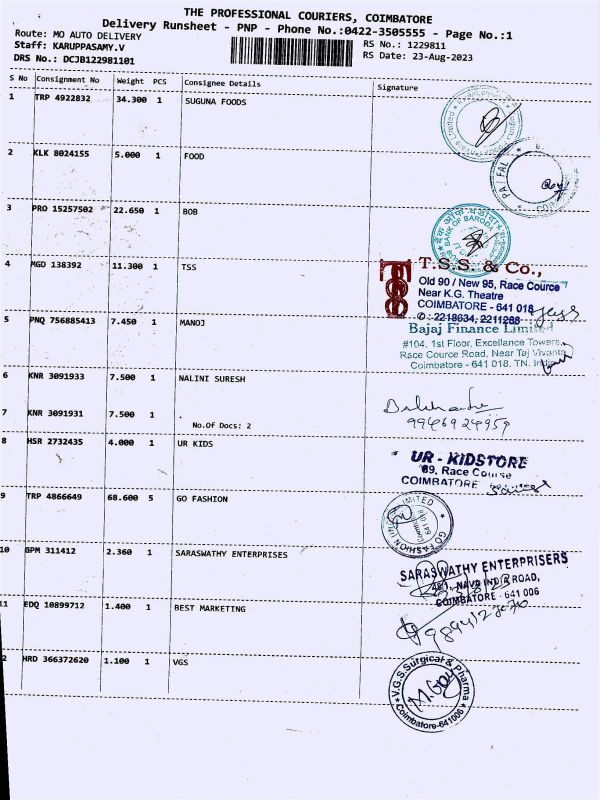 THE PROFESSIONAL COURIERS, COIMBATORE
Delivery Runsheet - PNP - Phone No.:0422-3505555 - Page No.:1
Route: MO AUTO DELIVERY
RS No.: 1229811
Staff: KARUPPASAMY.V
RS Date: 23-Aug-2023
DRS No.: DCJB122981101
S No Consignment No Weight PCS Consignee Details Signature
1 TRP 4922832 34.300 1 SUGUNA FOODS
2 KLK 8024155 5.000 1 FOOD
3 PRO 15257502 22.650 1 BOB
BANK OF BARODA
4 MGD 138392 11.300 1 TSS
T.S.S. & Co.,
Old 90 / New 95, Race Cource
Near K.G. Theatre
COIMBATORE - 641 018
✆ : 2218634, 2211266
5 PNQ 756885413 7.450 1 MANOJ
Bajaj Finance Limited
#104, 1st Floor, Excellance Towers,
Race Cource Road, Near Taj Vivanta
Coimbatore - 641 018. TN. India
6 KNR 3091933 7.500 1 NALINI SURESH
7 KNR 3091931 7.500 1 .
No.Of Docs: 2
8 HSR 2732435 4.000 1 UR KIDS
UR - KIDSTORE
89, Race Course
COIMBATORE
9 TRP 4866649 68.600 5 GO FASHION
GO FASHION LIMITED
10 GPM 311412 2.360 1 SARASWATHY ENTERPRISES
SARASWATHY ENTERPRISERS
NAVA INDIA ROAD,
COIMBATORE - 641 006
11 EDQ 10899712 1.400 1 BEST MARKETING
2 HRD 366372620 1.100 1 VGS
V.G.S Surgical & Pharma
Coimbatore-641006